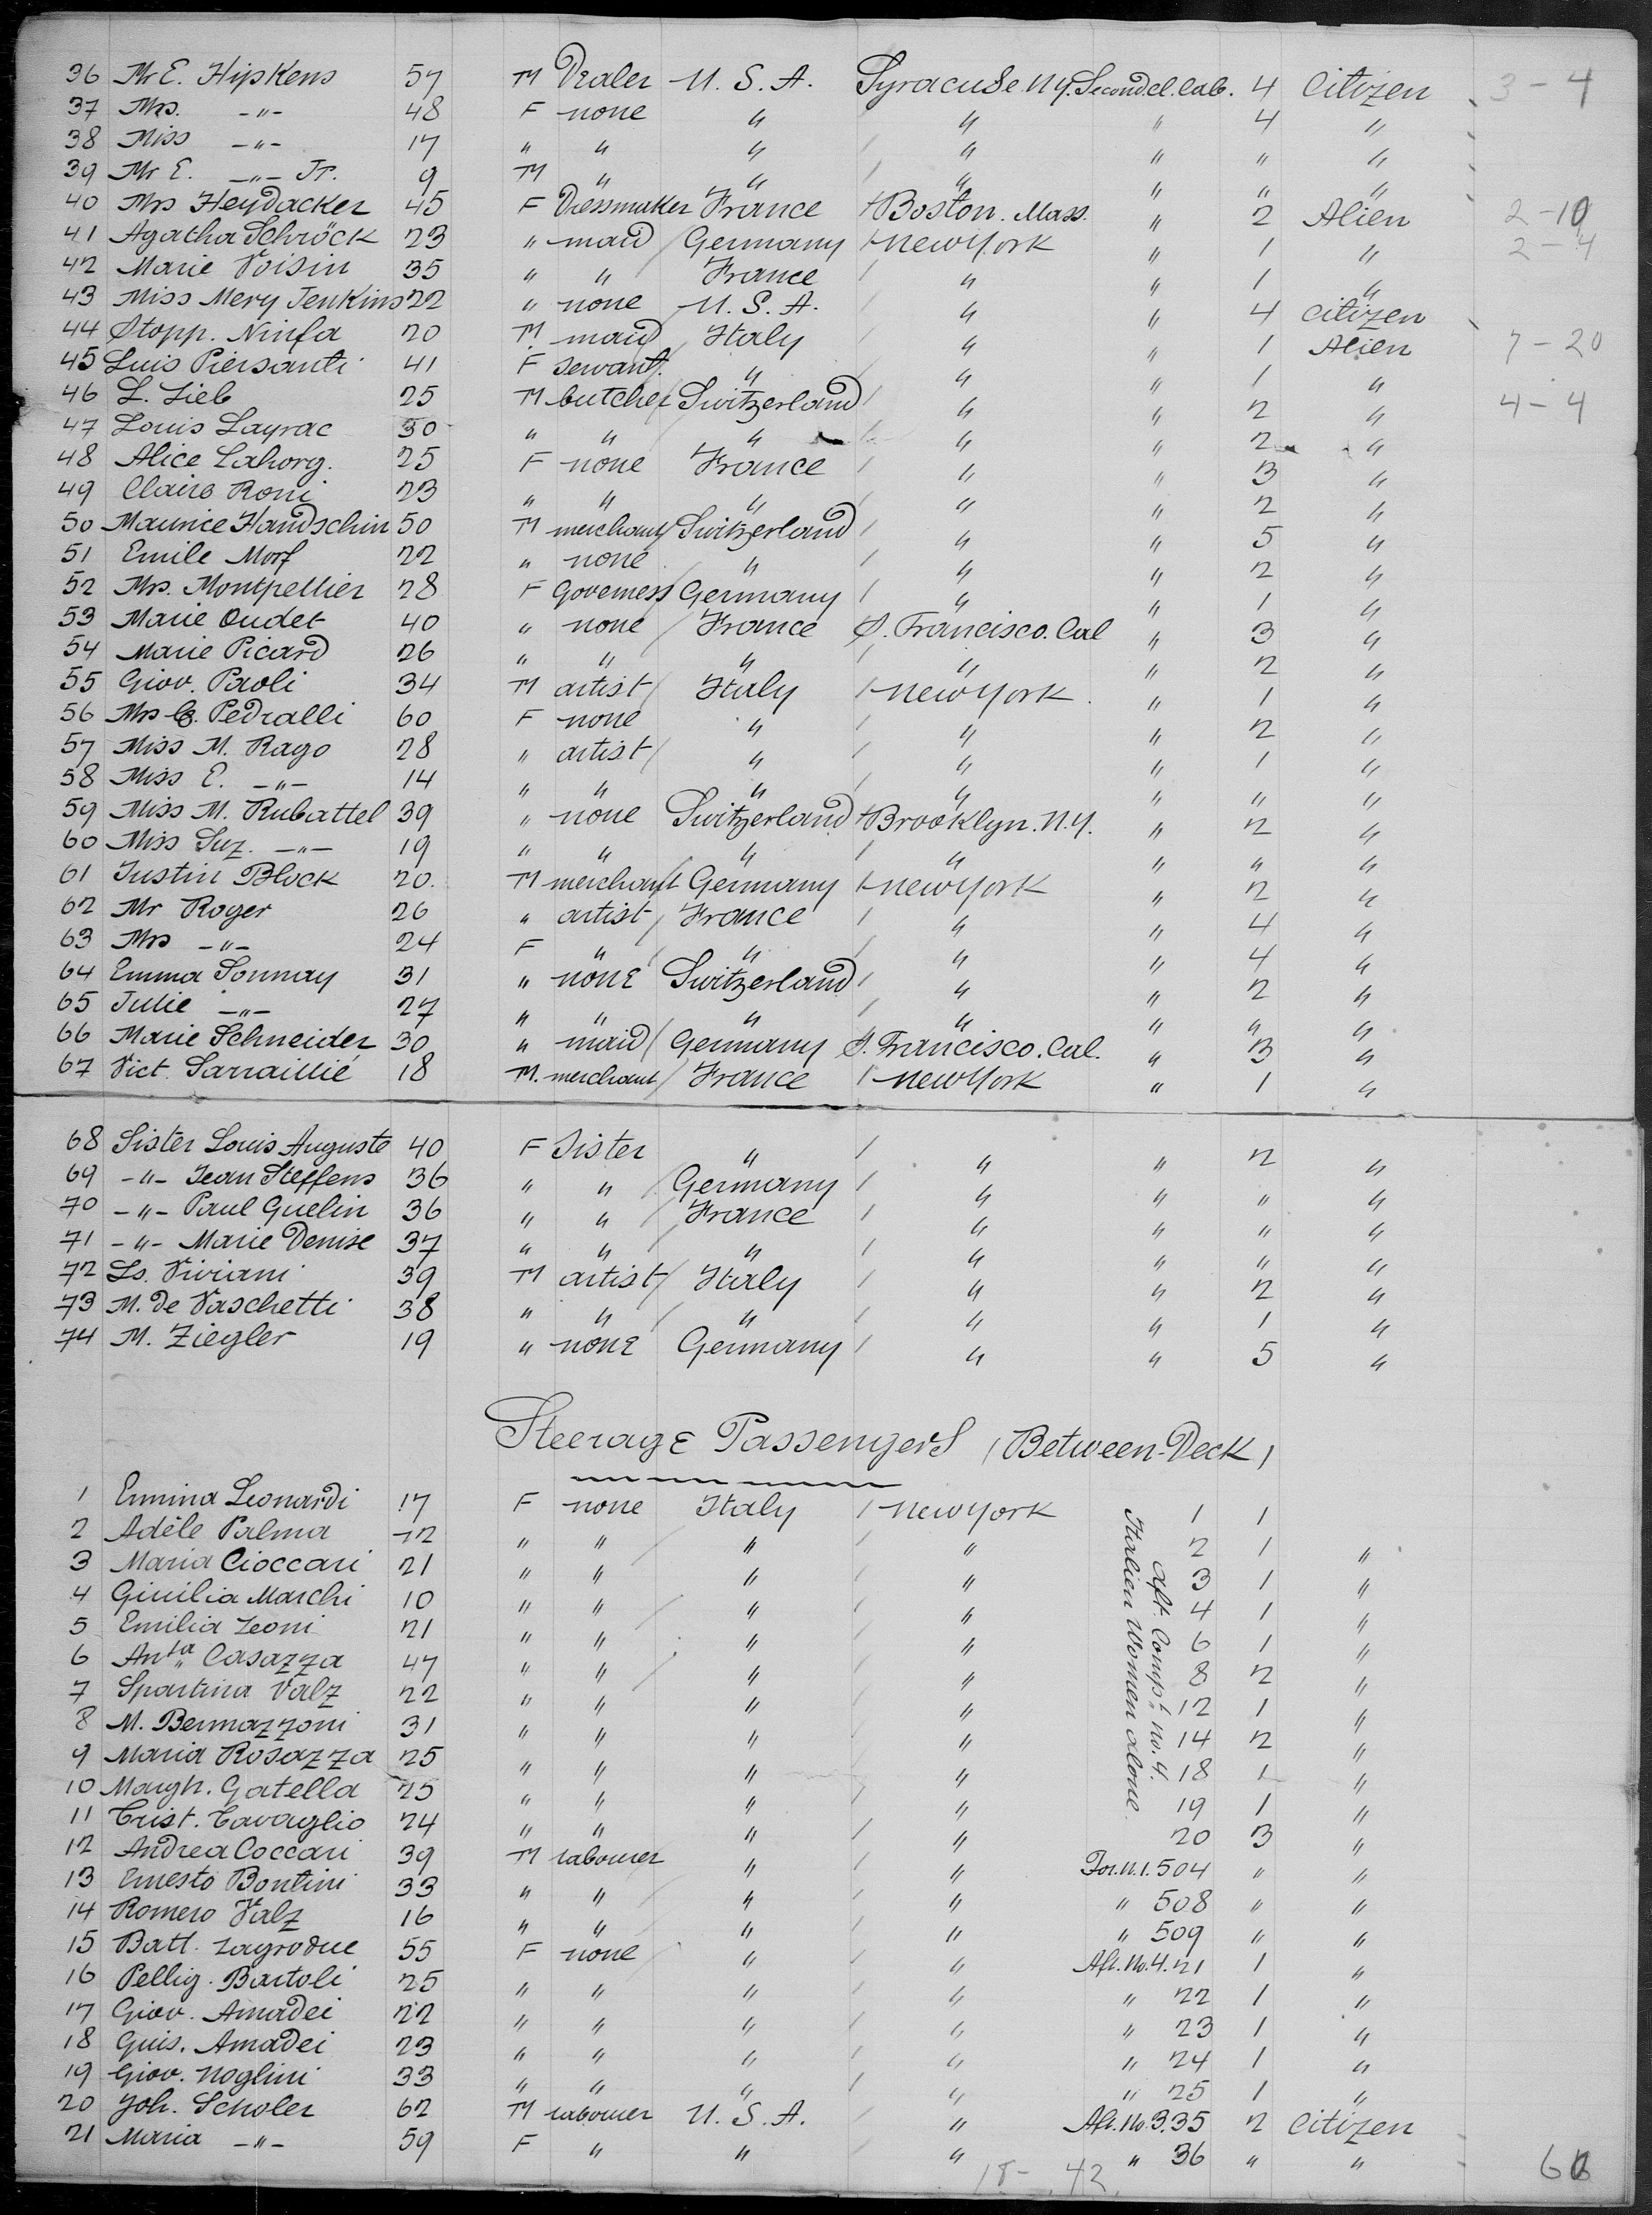 36 Mr E. Hipkens 57 M Dealer U.S.A. Syracuse N.Y. Second cl. Cab. 4 Citizen 3-4
37 Mrs. -"- 48 F none " " " 4 "
38 Miss -"- 17 " " " " " " "
39 Mr E. -"- Jr. 9 M " " " " " "
40 Mrs Heydacker 45 F Dressmaker France Boston. Mass. " 2 Alien 2-10
41 Agatha Schröck 23 " maid Germany New York " 1 " 2-4
42 Marie Voisin 35 " " France " " 1 "
43 Miss Mery Jenkins 22 " none U.S.A. " " 4 Citizen
44 Stopp. Ninfa 20 M maid Italy " " 1 Alien 7-20
45 Luis Piersanti 41 F servant. " " " 1 "
46 L. Lieb 25 M butcher Switzerland " " 2 " 4-4
47 Louis Layrac 30 " " " " " 2 "
48 Alice Lahorg. 25 F none France " " 3 "
49 Claire Roni 23 " " " " " 2 "
50 Maurice Handschin 50 M merchant Switzerland " " 5 "
51 Emile Morf 22 " none " " " 2 "
52 Mrs. Montpellier 28 F Governess Germany " " 1 "
53 Marie Oudet 40 " none France S. Francisco. Cal " 3 "
54 Marie Picard 26 " " " " " 2 "
55 Giov. Paoli 34 M artist Italy New York " 1 "
56 Mrs C. Pedralli 60 F none " " " 2 "
57 Miss M. Rago 28 " artist " " " 1 "
58 Miss E. -"- 14 " " " " " " "
59 Miss M. Rubattel 39 " none Switzerland Brooklyn. N.Y. " 2 "
60 Miss Suz. -"- 19 " " " " " " "
61 Justin Block 20. M merchant Germany New York " 2 "
62 Mr Roger 26 " artist France " " 4 "
63 Mrs -"- 24 F " " " " 4 "
64 Emma Sonnay 31 " none Switzerland " " 2 "
65 Julie -"- 27 " " " " " " "
66 Marie Schneider 30 " maid Germany S. Francisco. Cal. " 3 "
67 Vict. Sarraillié 18 M. merchant France New York " 1 "
68 Sister Louis Auguste 40 F Sister " " " 2 "
69 -"- Jean Steffens 36 " " Germany " " " "
70 -"- Paul Guelin 36 " " France " " " "
71 -"- Marie Denise 37 " " " " " " "
72 Ls. Viviani 39 M artist Italy " " 2 "
73 M. de Vaschetti 38 " " " " " 1 "
74 M. Ziegler 19 " none Germany " " 5 "
Steerage Passengers (Between-Deck)
1 Ermina Leonardi 17 F none Italy New York 1 1
2 Adèle Palma 72 " " " " 2 1 "
3 Maria Cioccari 21 " " " " 3 1 "
4 Giuilia Marchi 10 " " " " 4 1 "
5 Emilia Leoni 21 " " " " 6 1 "
6 Anta Casazza 47 " " " " 8 2 "
7 Spartina Valz 22 " " " " 12 1 "
8 M. Bermazzoni 31 " " " " 14 2 "
9 Maria Rosazza 25 " " " " 18 1 "
10 Margh. Gatella 25 " " " " 19 1 "
11 Crist. Cavaglio 24 " " " " 20 3 "
Aft. Compt. no. 4.
Italien Women alone.
12 Andrea Coccari 39 M labourer " " For. N.1. 504 " "
13 Ernesto Bontini 33 " " " " " 508 " "
14 Romero Valz 16 " " " " " 509 " "
15 Batt. Lagrodue 55 F none " " Aft. No. 4. 21 1 "
16 Pellig. Bartoli 25 " " " " " 22 1 "
17 Giov. Amadei 22 " " " " " 23 1 "
18 Guis. Amadei 23 " " " " " 24 1 "
19 Giov. Noglini 33 " " " " " 25 1 "
20 Joh. Scholer 62 M labourer U.S.A. " Aft. No. 3. 35 2 Citizen
21 Maria -"- 59 F " " " " 36 " "
18- 42